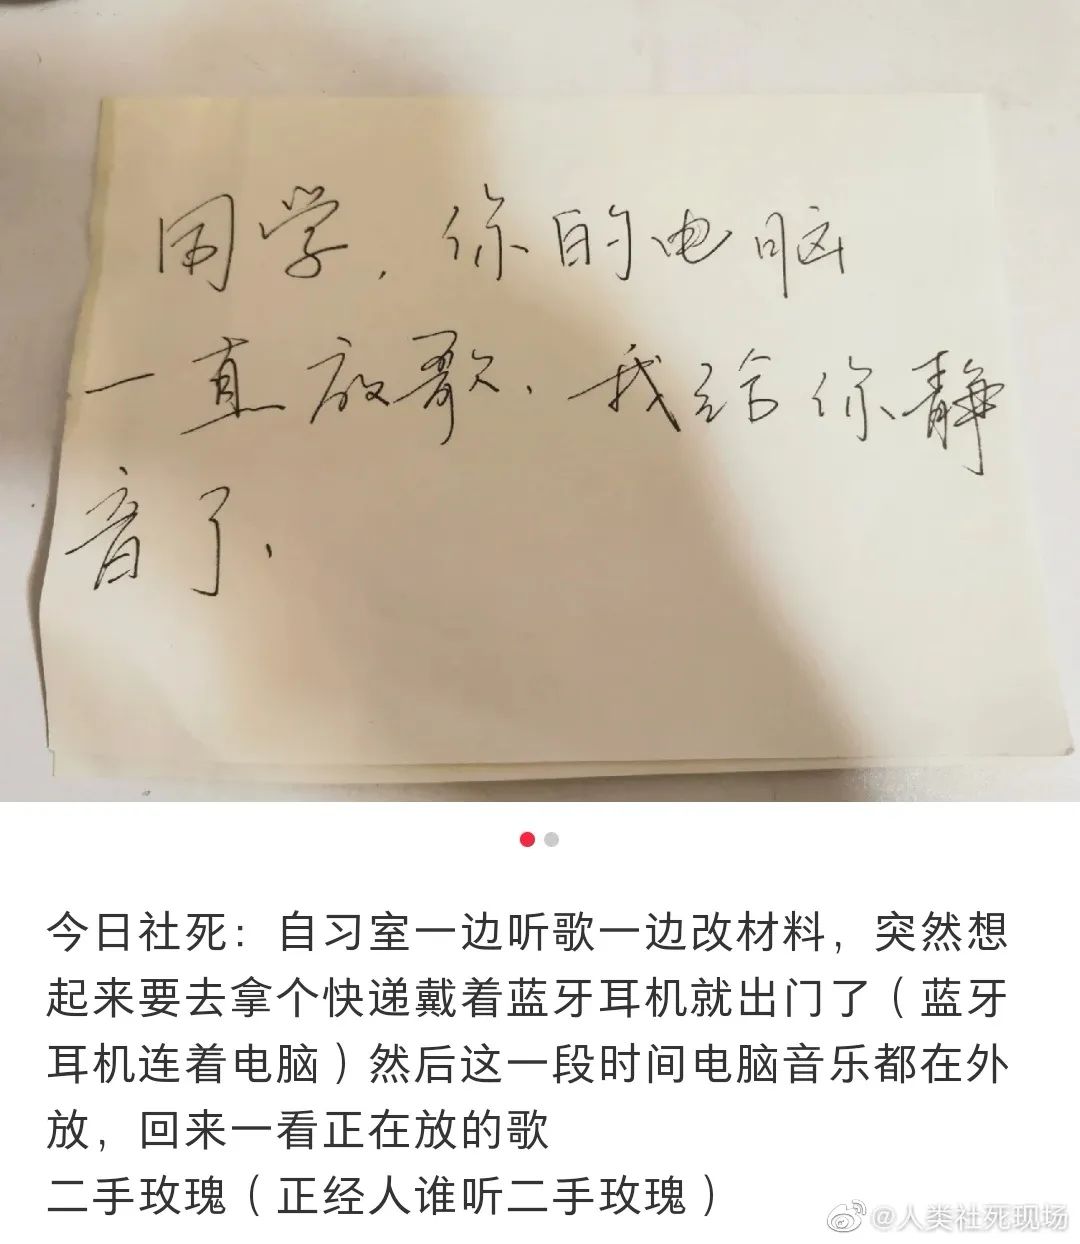 同学，你的电脑
一直放歌、我给你静
音了、
今日社死：自习室一边听歌一边改材料，突然想
起来要去拿个快递戴着蓝牙耳机就出门了（蓝牙
耳机连着电脑）然后这一段时间电脑音乐都在外
放，回来一看正在放的歌
二手玫瑰（正经人谁听二手玫瑰）
@人类社死现场